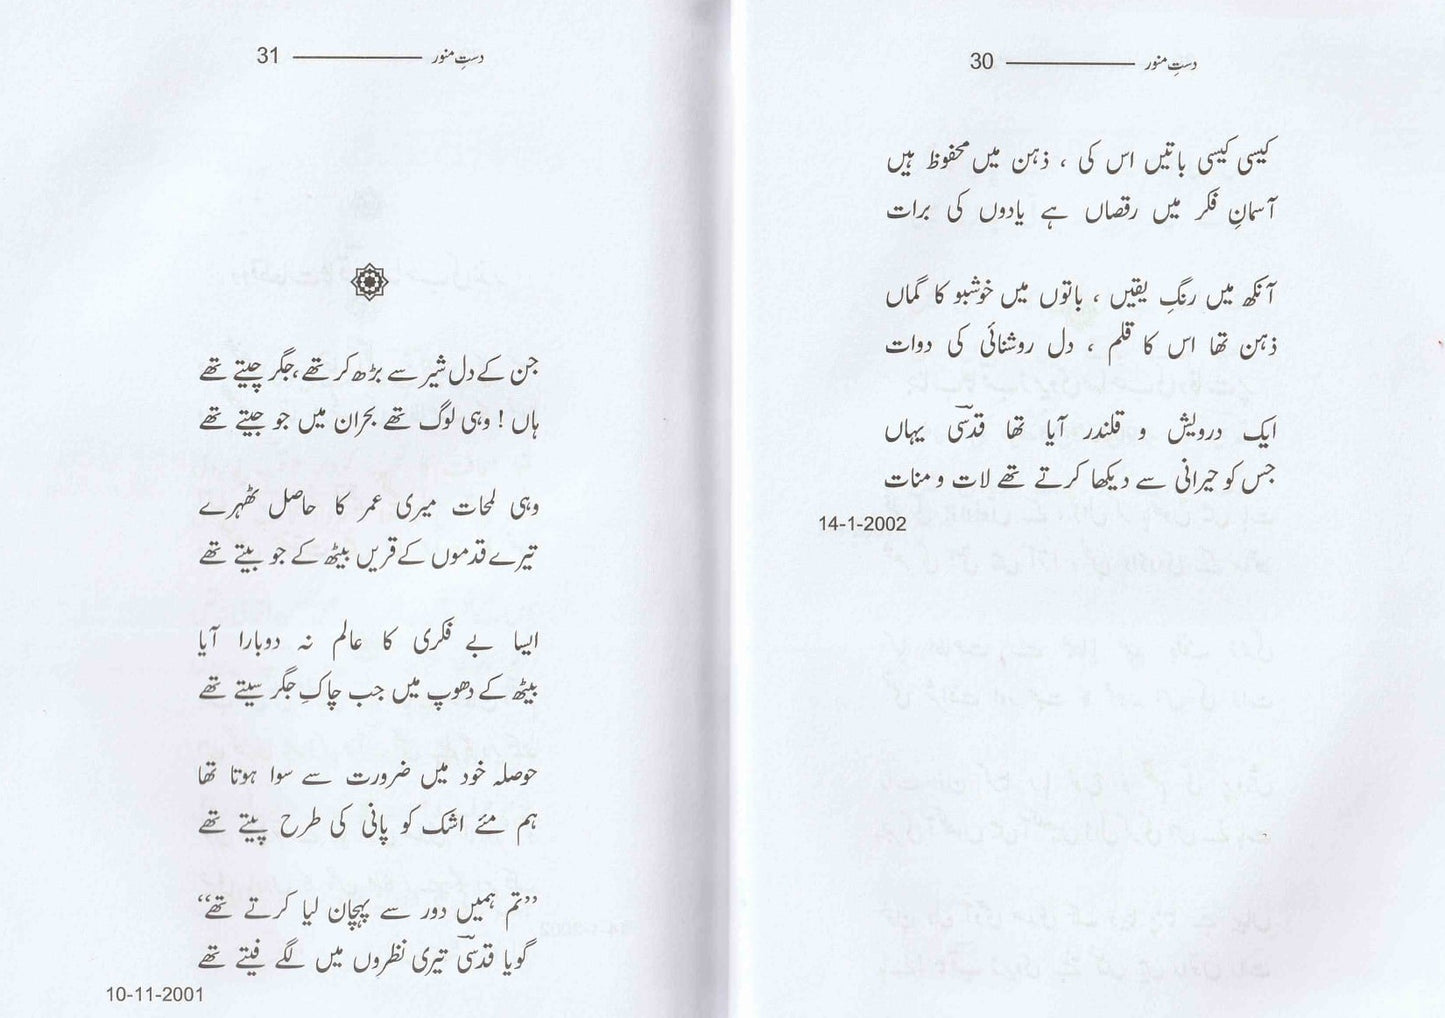 دستِ منور 30
کیسی کیسی باتیں اس کی ، ذہن میں محفوظ ہیں
آسمانِ فکر میں رقصاں ہے یادوں کی برات
آنکھ میں رنگِ یقیں ، باتوں میں خوشبو کا گماں
ذہن تھا اس کا قلم ، دل روشنائی کی دوات
ایک درویش و قلندر آیا تھا قدسیؔ یہاں
جس کو حیرانی سے دیکھا کرتے تھے لات و منات
14-1-2002
دستِ منور 31
جن کے دل شیر سے بڑھ کر تھے ،جگر چیتے تھے
ہاں ! وہی لوگ تھے بحران میں جو جیتے تھے
وہی لمحات میری عمر کا حاصل ٹھہرے
تیرے قدموں کے قریں بیٹھ کے جو بیتے تھے
ایسا بے فکری کا عالم نہ دوبارا آیا
بیٹھ کے دھوپ میں جب چاکِ جگر سیتے تھے
حوصلہ خود میں ضرورت سے سوا ہوتا تھا
ہم مئے اشک کو پانی کی طرح پیتے تھے
”تم ہمیں دور سے پہچان لیا کرتے تھے“
گویا قدسیؔ تیری نظروں میں لگے فیتے تھے
10-11-2001